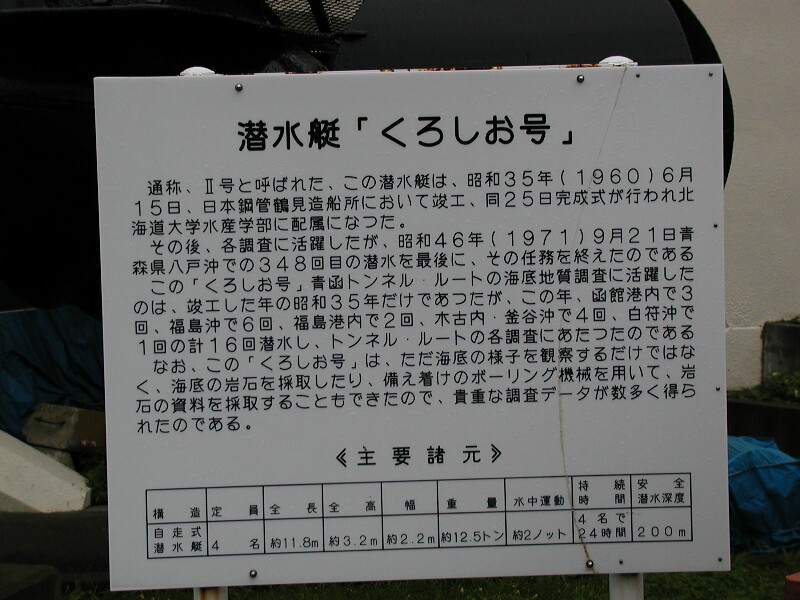 潜水艇「くろしお号」
通称、Ⅱ号と呼ばれた、この潜水艇は、昭和35年(1960)6月
15日、日本鋼管鶴見造船所において竣工、同25日完成式が行われ北
海道大学水産学部に配属になつた。
その後、各調査に活躍したが、昭和46年(1971)9月21日青
森県八戸沖での348回目の潜水を最後に、その任務を終えたのである
この「くろしお号」青函トンネル・ルートの海底地質調査に活躍した
のは、竣工した年の昭和35年だけであつたが、この年、函館港内で3
回、福島沖で6回、福島港内で2回、木古内・釜谷沖で4回、白符沖で
1回の計16回潜水し、トンネル・ルートの各調査にあたつたのである
なお、この「くろしお号」は、ただ海底の様子を観察するだけではな
く、海底の岩石を採取したり、備え着けのボーリング機械を用いて、岩
石の資料を採取することもできたので、貴重な調査データが数多く得ら
れたのである。
《主要諸元》
構造 定員 全長 全高 幅 重量 水中運動 持続時間 安全潜水深度
自走式潜水艇 4名 約11.8m 約3.2m 約2.2m 約12.5トン 約2ノット 4名で24時間 200m